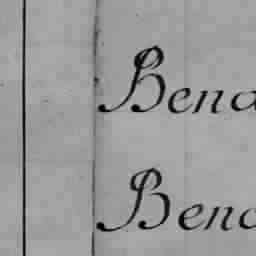 Bena
Benc